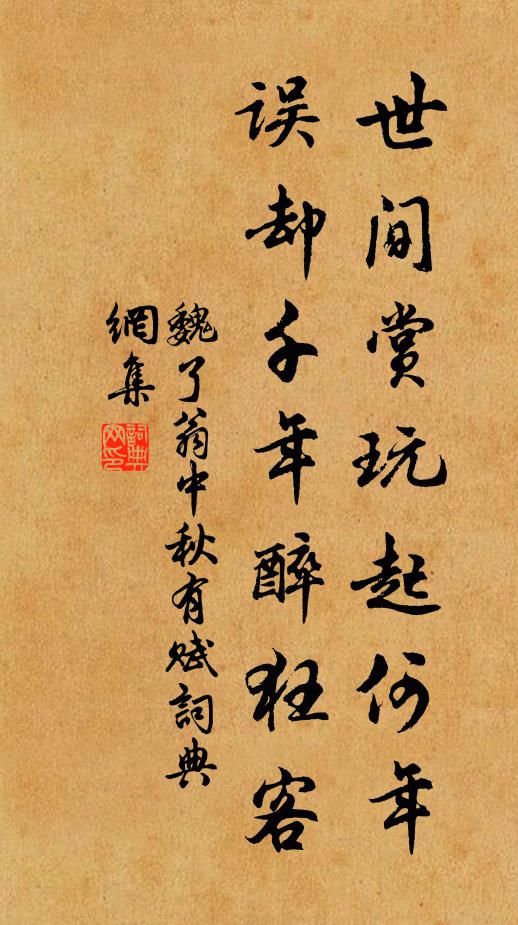 世间赏玩起何年
误却千年醉狂客
魏了翁中秋有赋詞典
網集
詞典
网印